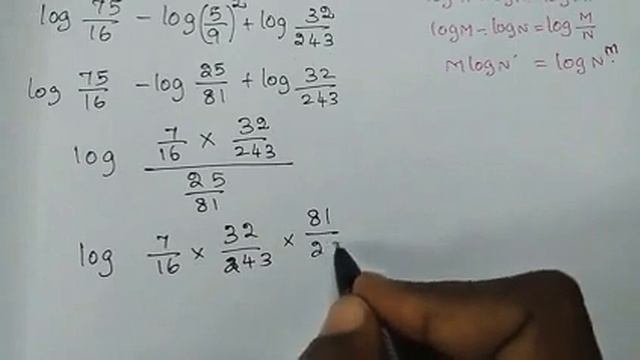 log 75/16 - log(5/9)^2 + log 32/243
logM - logN = log M/N
MlogN = logN^m.
log 75/16 - log 25/81 + log 32/243
log (7/16 × 32/243)/(25/81)
log 7/16 × 32/243 × 81/2